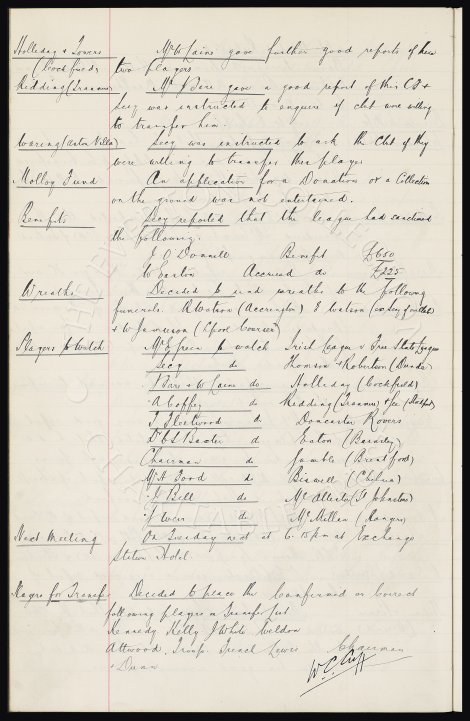 Holliday & Towers Mr W Laine gave further good reports of these
(Cockfield) two players
Redding (Tranmere) Mr J Bare gave a good report of this CF &
Secy was instructed to enquire if club were willing
to transfer him.
Waring (Aston Villa) Secy was instructed to ask the Club if they
were willing to transfer this player
Molloy Fund An application for a Donation or a Collection
on the ground was not entertained.
Benefits Secy reported that the league had sanctioned
the following.
J O Donnell Benefit £650
Accrued do £225
Wreaths Decided to send wreaths to the following
funerals. R Watson (Accrington) E Watson
& W Jamieson (L'pool Courier)
Players to Watch Mr E Green to watch Irish League v Free State League
Secy do Thomson & Robertson (Dundee)
J Bare & W Laine do Holliday (Cockfield)
A Coffey do Redding (Tranmere) & Lee
J Fleetwood do Doncaster Rovers
Dr C S Baxter do Eaton (Barnsley)
Chairman do Gamble (Brentford)
Mr H Ford do (Chelsea)
" Bell do (St Johnstone)
" Weir do McMillan (Rangers)
Next Meeting On Tuesday next at 6.15pm at Exchange
Station Hotel.
Players for Transfer Decided to place the confirmed or correct
following players on Transfer List
Kennedy Kelly J White Weldon
Attwood. Troup. French Lewis Chairman
& Dunn W.C. Cuff